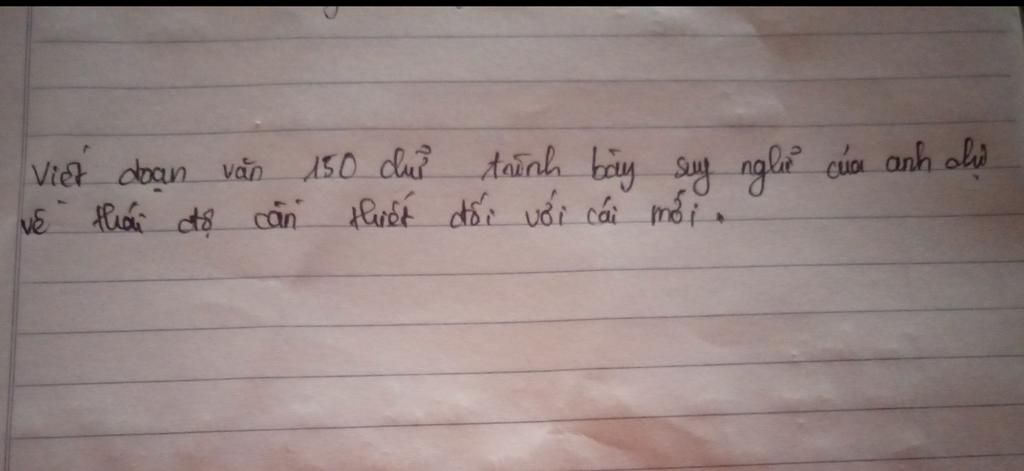 Viết đoạn văn 150 chữ trình bày suy nghĩ của anh chị
về thái độ cần thiết đối với cái mới.